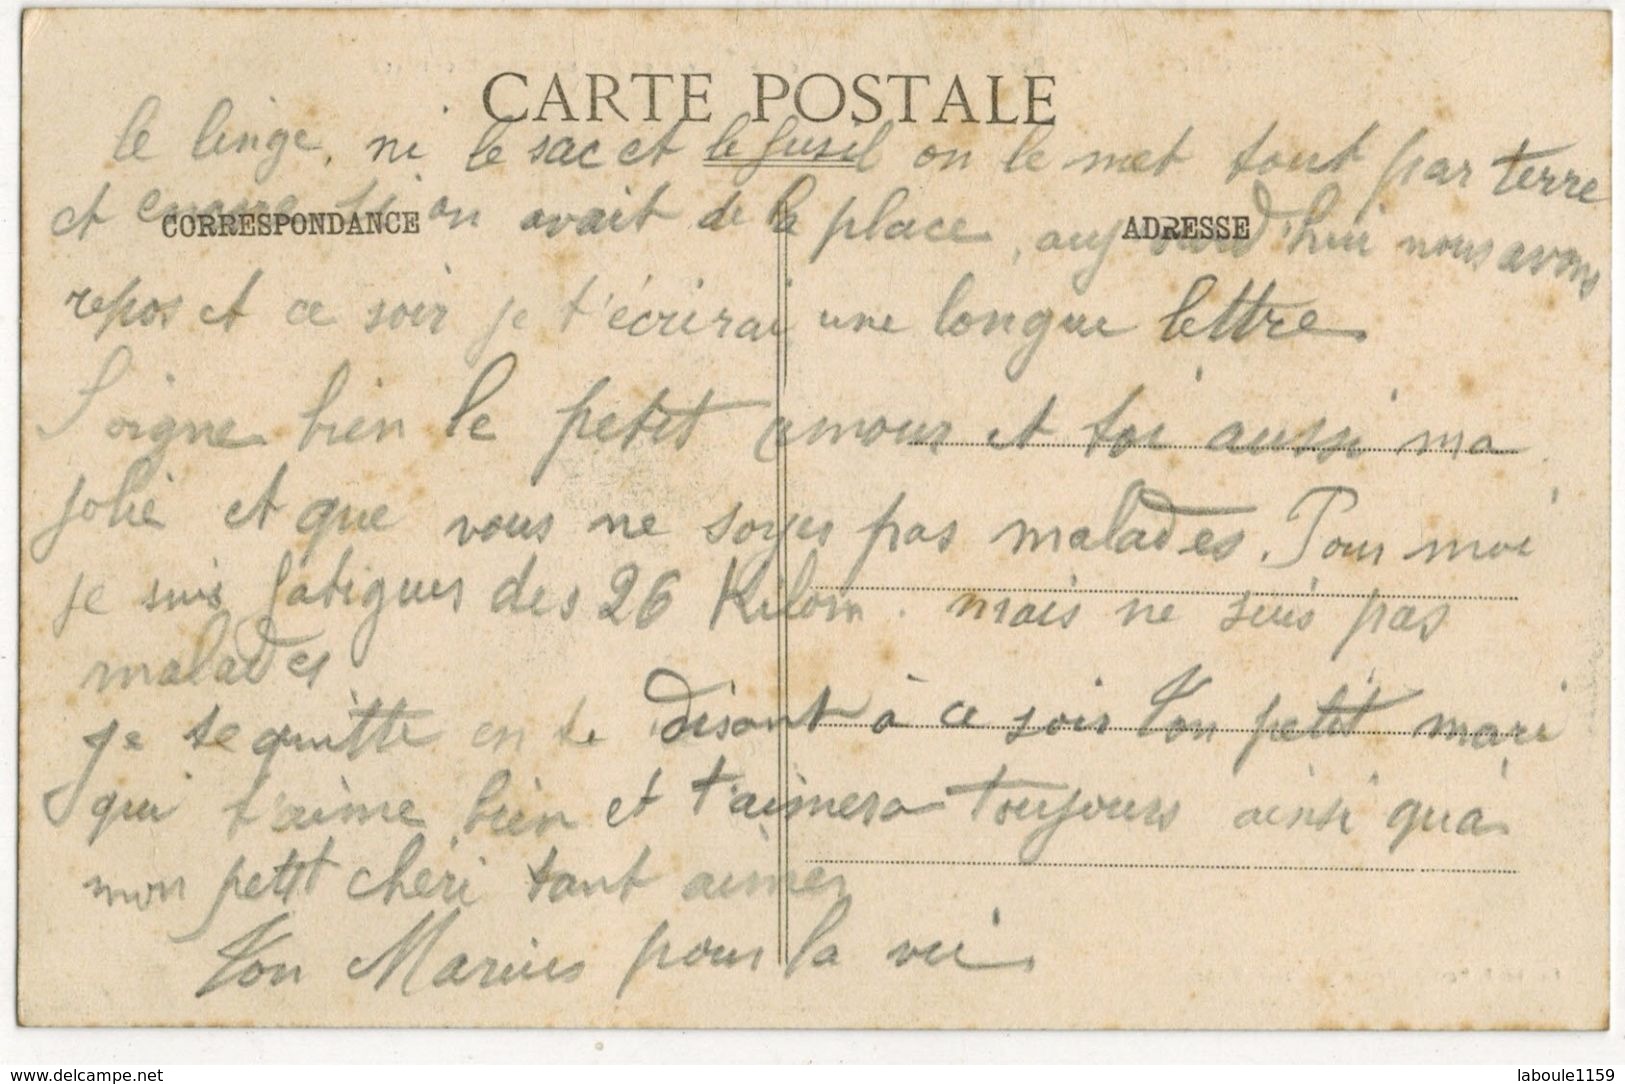 CARTE POSTALE
le linge, ni le sac et le fusil on le met tout par terre
et encore si on avait de la place, aujourd'hui nous avons
CORRESPONDANCE
ADRESSE
repos et ce soir je t'écrirai une longue lettre
Soigne bien le petit amour et toi aussi ma
jolie et que vous ne soyes pas malades. Pour moi
je suis fatiguer des 26 Kilom. mais ne suis pas
malades
je te quitte en te disant à ce soir Ton petit mari
qui t'aime bien et t'aimera toujours ainsi qu'à
mon petit chéri tant aimer
Ton Marius pour la vie
www.delcampe.net
laboule1159